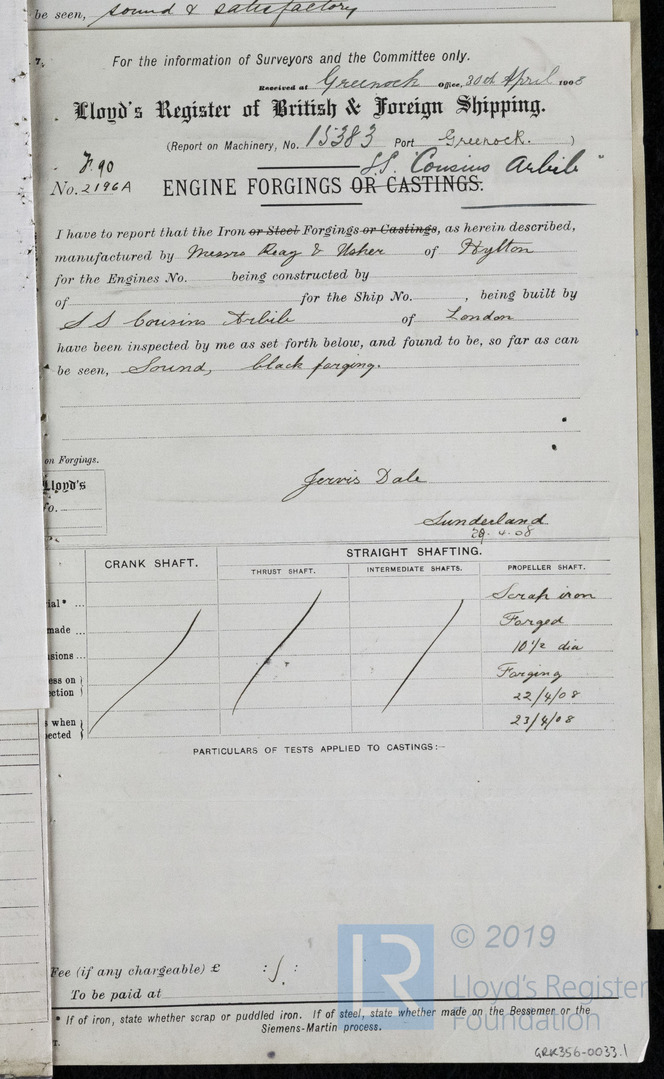 be seen, sound & satisfactory
7.
For the information of Surveyors and the Committee only.
Received at Greenock Office, 30th April 1908
Lloyd's Register of British & Foreign Shipping.
(Report on Machinery, No. 15383 Port Greenock. )
F.90 S.S. "Cousins Arbib"
No. 2196A ENGINE FORGINGS OR CASTINGS.
I have to report that the Iron or Steel Forgings or Castings, as herein described,
manufactured by Messrs Reay & Usher of Hylton
for the Engines No. being constructed by
of for the Ship No. , being built by
S S Cousins Arbib of London
have been inspected by me as set forth below, and found to be, so far as can
be seen, Sound, black forging.
on Forgings.
Lloyd's
No.
Jervis Dale
Sunderland
29.4.08
CRANK SHAFT. STRAIGHT SHAFTING.
THRUST SHAFT. INTERMEDIATE SHAFTS. PROPELLER SHAFT.
ial* ... Scrap iron
made ... Forged
sions ... 10½ dia
ess on Forging
ction 22/4/08
s when 23/4/08
ected
PARTICULARS OF TESTS APPLIED TO CASTINGS:-
Fee (if any chargeable) £ : / :
To be paid at
* If of iron, state whether scrap or puddled iron. If of steel, state whether made on the Bessemer or the
Siemens-Martin process.
T.
© 2019
LR
Lloyd's Register
Foundation
GRK356-0033.1